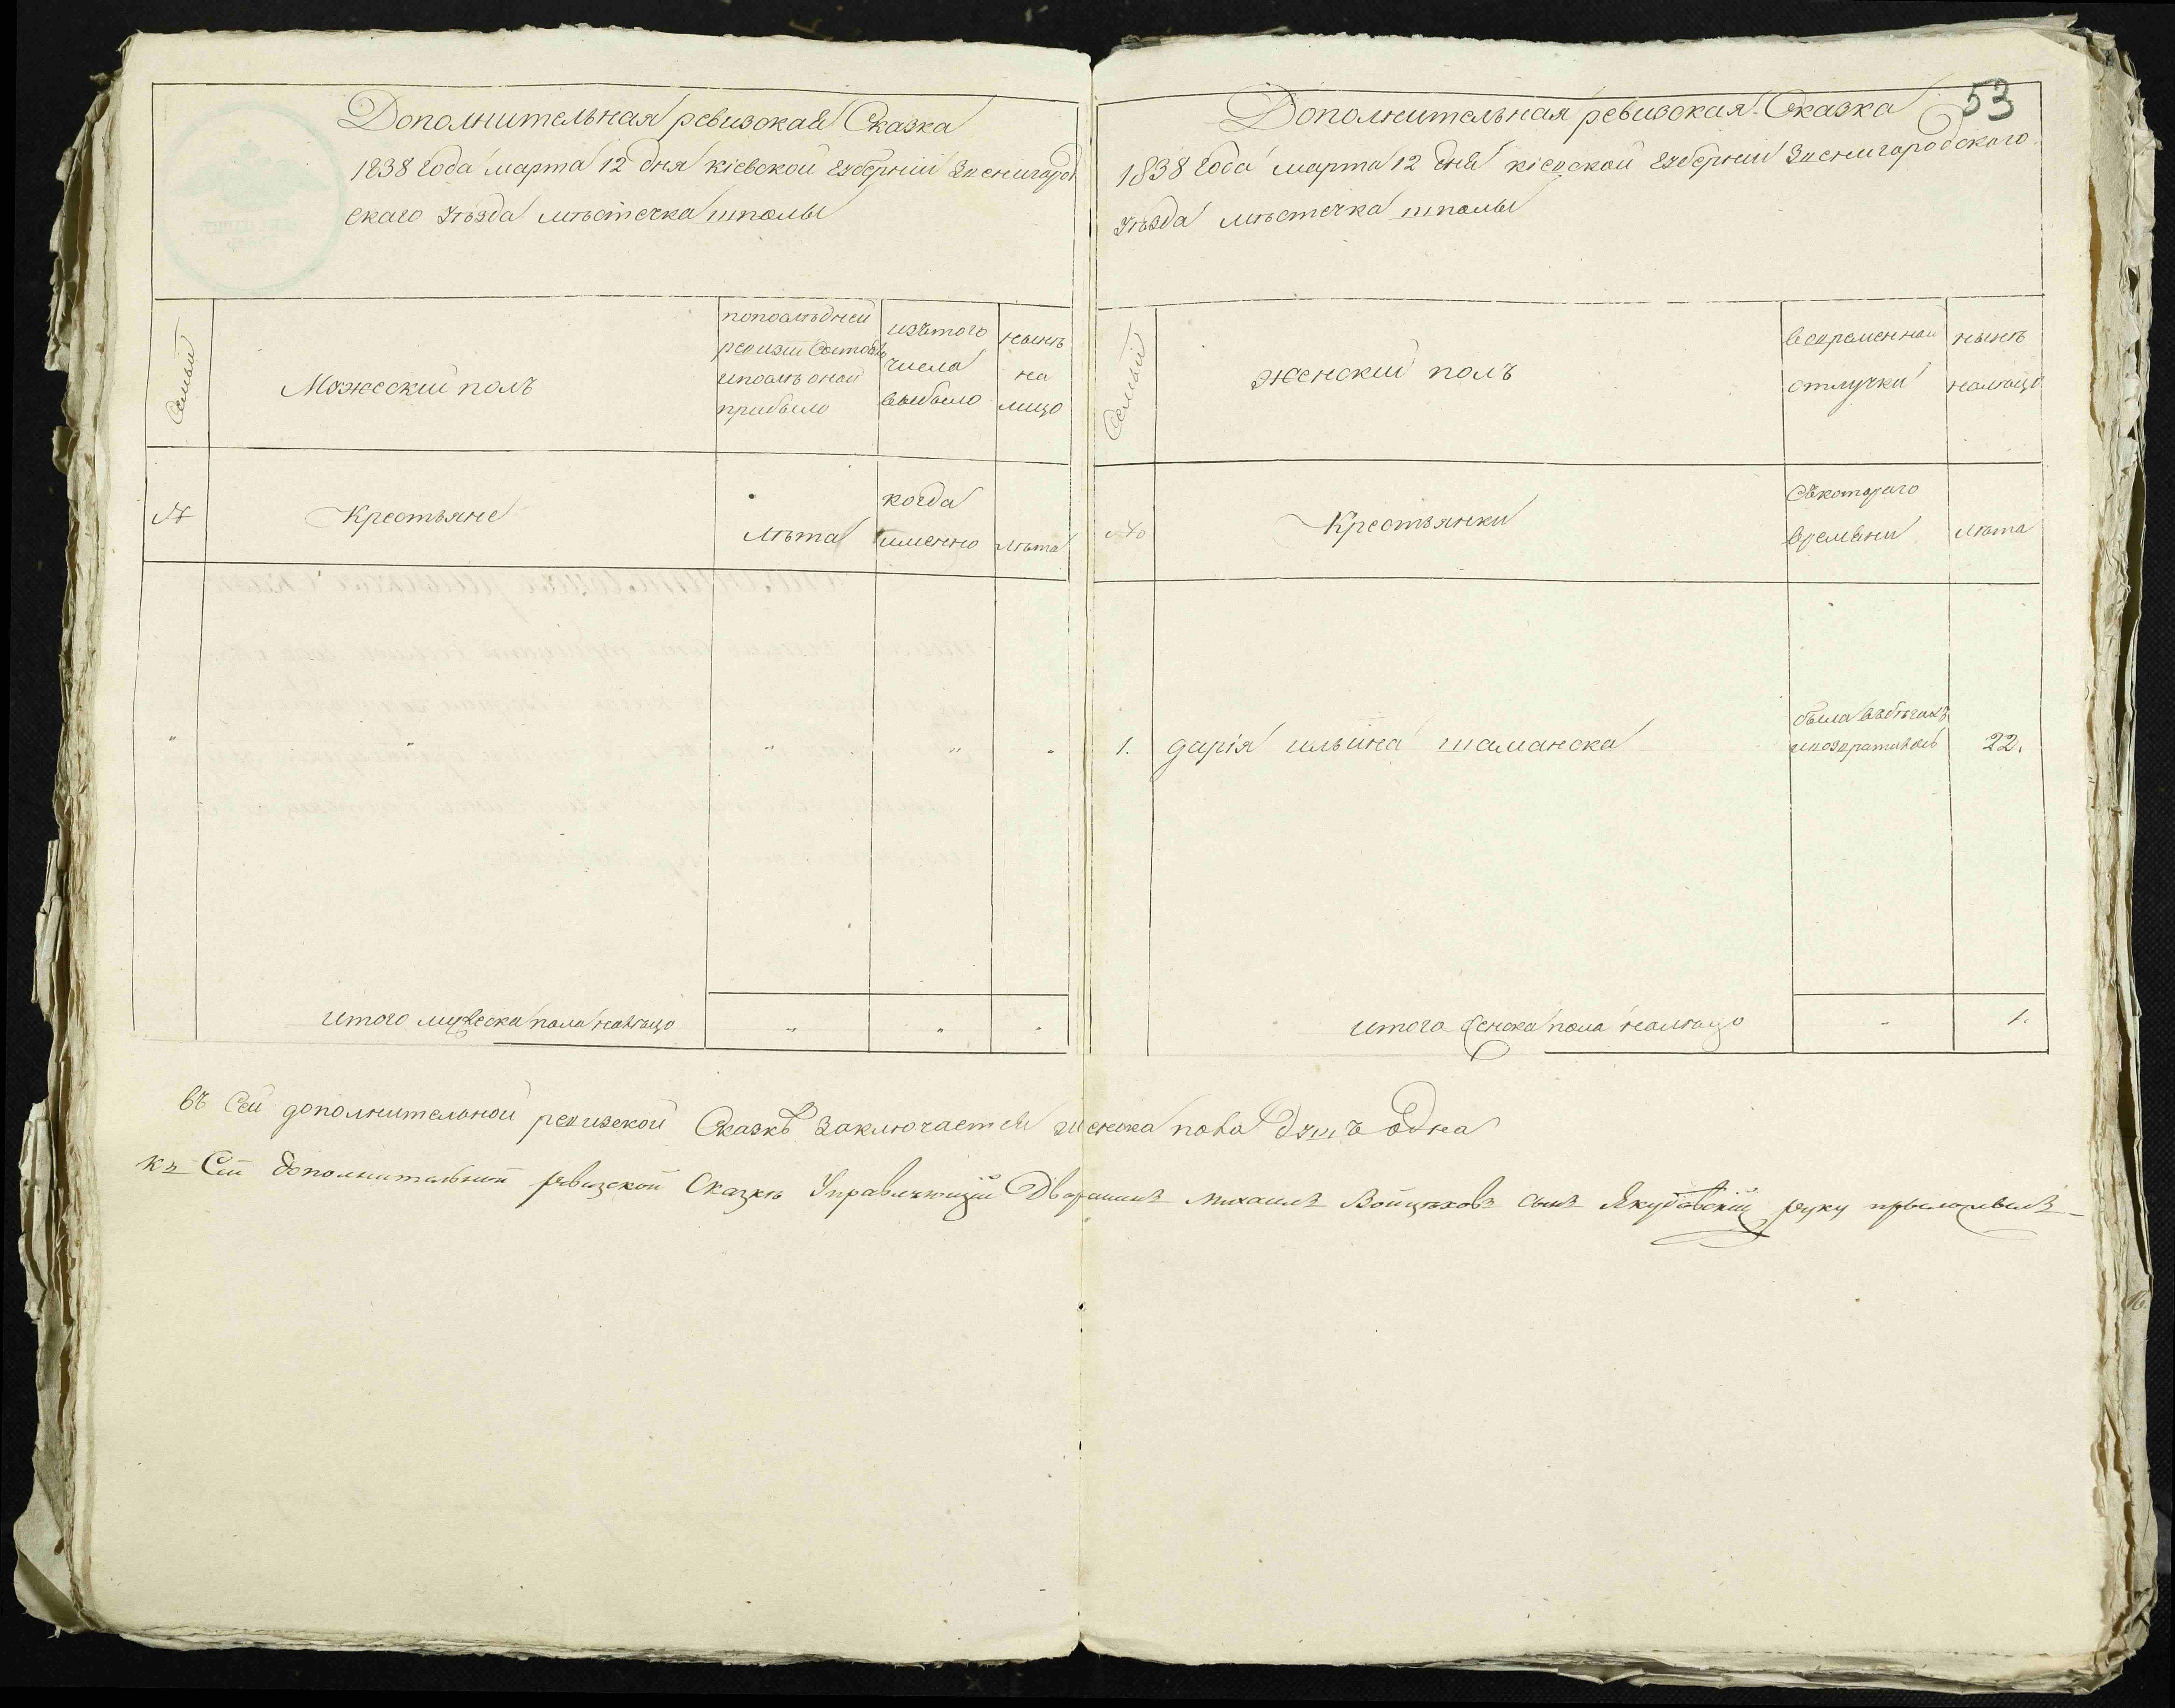 Дополнительная ревизская Сказка
1838 Года марта 12 дня кіевской губерніи Звенигород
скаго уѣзда мѣстечка шполы
Семьи
Мужеский полъ
по послѣдней
ревизіи Состояло
и послѣ оной
прибыло
изътого
числа
выбыло
нынѣ
на
лицо
№
Крестьяне
лѣта
когда
именно
лѣта
" " " " "
итого мужеска пола налицо " " "
53
Дополнительная ревизская Сказка
1838 Года марта 12 дня кіевской губерніи Звенигородского
уѣзда мѣстечка шполы
Семьи
женский полъ
вовременной
отлучки
нынѣ
налицо
№
Крестьянки
Съкотораго
времени
лѣта
1. дарія ильина шаманска
была въбѣгахъ
ивозвратилась
22.
итого женска пола налицо " 1.
въ Сей дополнительной ревизской Сказкѣ заключается женска пола душъ одна
Къ Сей дополнительной ревизской Сказкѣ Управляющій Дворянинъ Михаилъ Войцѣховъ Сынъ Якубовскій руку приложилъ